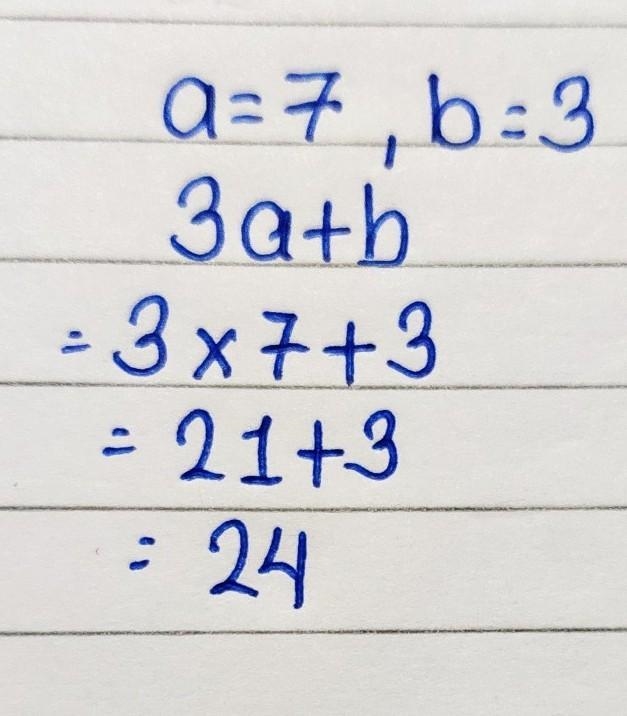 a=7, b=3
3a+b
=3×7+3
= 21+3
= 24